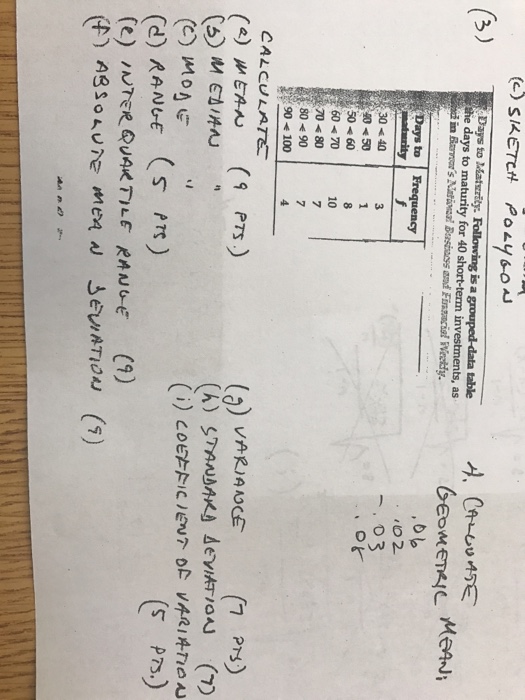 (c) SKETCH POLYGON
(3)
Days to Maturity. Following is a grouped-data table
the days to maturity for 40 short-term investments, as
in Barron's National Business and Financial Weekly.
Days to Frequency
maturity f
30 < 40 3
40 < 50 1
50 < 60 8
60 < 70 10
70 < 80 7
80 < 90 7
90 < 100 4
CALCULATE
(a) MEAN (9 PTS.)
(b) MEDIAN "
(c) MODE "
(d) RANGE (5 PTS)
(e) INTERQUARTILE RANGE (9)
(f) ABSOLUTE MEAN DEVIATION (9)
4. CALCULATE
GEOMETRIC MEAN:
.06
.02
-.03
(g) VARIANCE (7 PTS)
(h) STANDARD DEVIATION (7)
(i) COEFFICIENT OF VARIATION
(5 PTS.)